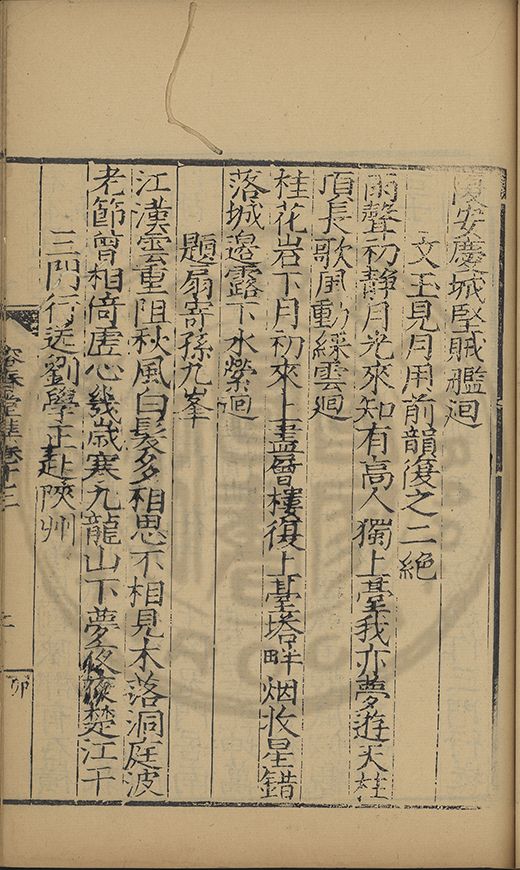 安慶城堅賊艦迴
文玉見月用前韻復之二絶
雨聲初靜月光來知有高人獨上臺我亦夢遊天柱
頂長歌風動綵雲迴
桂花岩下月初來上盡層樓復上臺塔畔烟收星錯
落城邉露下水縈迴
題扇寄孫九峯
江漢雲重阻秋風白髪多相思不相見木落洞庭波
老節曾相倚虛心幾歲寒九龍山下夢終復楚江干
三門行送劉學正赴陝州
容春堂集卷十三